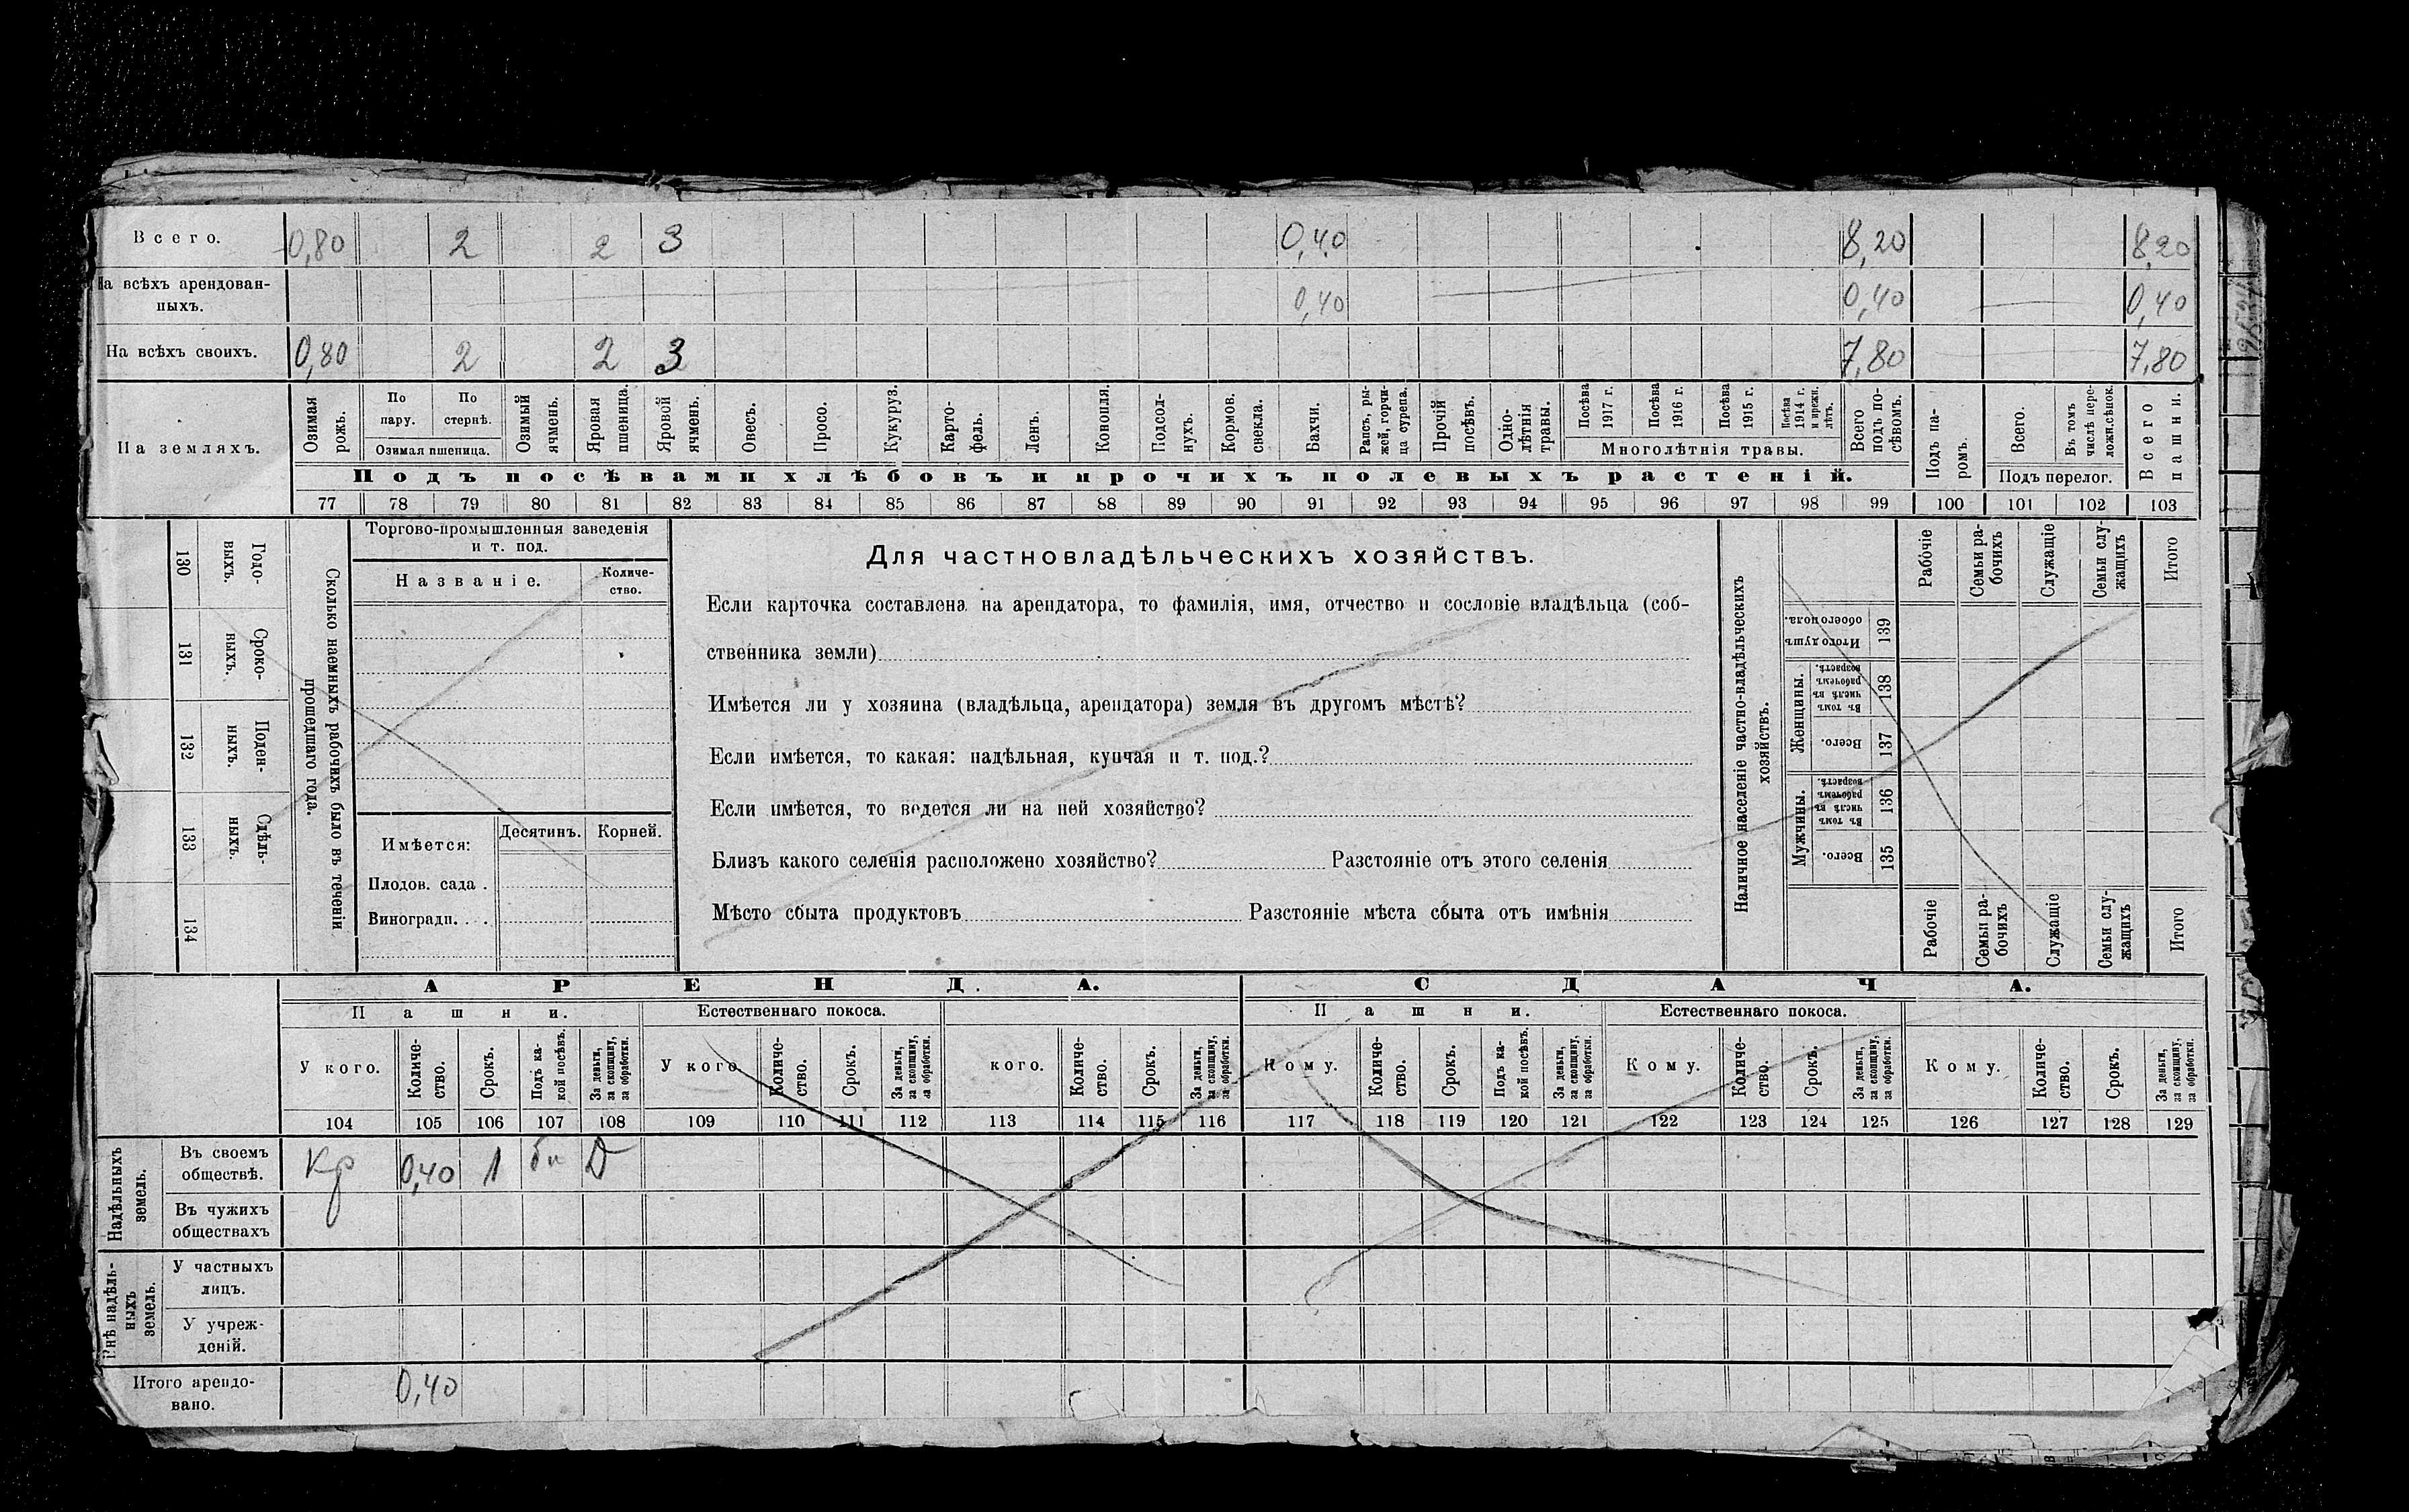 Всего. 0,80 2 2 3 0,40 8,20 8,20
На всѣхъ арендован-
ныхъ. 0,40 0,40 0,40
На всѣхъ своихъ. 0,80 2 2 3 7,80 7,80
На земляхъ.
Озимая рожь.
По пару.
По стернѣ.
Озимая пшеница.
Озимый ячмень.
Яровая пшеница.
Яровой ячмень.
Овесъ.
Просо.
Кукуруз.
Карто-
фель.
Ленъ.
Конопля.
Подсол-
нухъ.
Кормов. свекла.
Бахчи.
Рапсъ, ры-
жей, горчи-
ца сурепа.
Прочій посѣвъ.
Одно-
лѣтнія травы.
Посѣва 1917 г.
Посѣва 1916 г.
Посѣва 1915 г.
Посѣва 1914 г. и прежн. лѣтъ.
Многолѣтнія травы.
Всего подъ по-
сѣвомъ.
Подъ па-
ромъ.
Всего.
Въ томъ числѣ пере-
ложн.сѣнок.
Подъ перелог.
Всего пашни.
Подъ посѣвами хлѣбовъ и прочихъ полевыхъ растеній.
77 78 79 80 81 82 83 84 85 86 87 88 89 90 91 92 93 94 95 96 97 98 99 100 101 102 103
130 Годо-
выхъ.
131 Сроко-
выхъ.
132 Поден-
ныхъ.
133 Сдѣль-
ныхъ.
134
Сколько наемныхъ рабочихъ было въ теченіи
прошедшаго года.
Торгово-промышленныя заведенія
и т. под.
Названіе.
Количе-
ство.
Имѣется:
Десятинъ. Корней.
Плодов. сада .
Виноградн. . .
Для частновладѣльческихъ хозяйствъ.
Если карточка составлена на арендатора, то фамилія, имя, отчество и сословіе владѣльца (соб-
ственника земли)
Имѣется ли у хозяина (владѣльца, арендатора) земля въ другомъ мѣстѣ?
Если имѣется, то какая: надѣльная, купчая и т. под.?
Если имѣется, то ведется ли на ней хозяйство?
Близъ какого селенія расположено хозяйство? Разстояніе отъ этого селенія
Мѣсто сбыта продуктовъ Разстояніе мѣста сбыта отъ имѣнія
Наличное населеніе частно-владѣльческихъ
хозяйствъ.
Рабочіе
Семьи ра-
бочихъ
Служащіе
Семьи слу-
жащихъ
Итого
Итого душъ обоего пола. 139
Женщины.
Въ томъ числѣ въ рабочемъ возрастѣ. 138
Всего. 137
Мужчины.
Въ томъ числѣ въ рабочемъ возрастѣ. 136
Всего. 135
Рабочіе
Семьи ра-
бочихъ
Служащіе
Семьи слу-
жащихъ
Итого
АРЕНДА. СДАЧА.
Пашни. Естественнаго покоса. Пашни. Естественнаго покоса.
У кого.
Количе-
ство.
Срокъ.
Подъ ка-
кой посѣвъ.
За деньги, за скопщину, за обработки.
У кого.
Количе-
ство.
Срокъ.
За деньги, за скопщину, за обработки.
кого.
Количе-
ство.
Срокъ.
За деньги, за скопщину, за обработки.
Кому.
Количе-
ство.
Срокъ.
Подъ ка-
кой посѣвъ.
За деньги, за скопщину, за обработки.
Кому.
Количе-
ство.
Срокъ.
За деньги, за скопщину, за обработки.
Кому.
Количе-
ство.
Срокъ.
За деньги, за скопщину, за обработки.
104 105 106 107 108 109 110 111 112 113 114 115 116 117 118 119 120 121 122 123 124 125 126 127 128 129
Надѣльныхъ
земель.
Въ своемъ
обществѣ. Кр 0,40 1 бп D
Въ чужихъ
обществахъ
Внѣ надѣль-
ныхъ
земель.
У частныхъ
лицъ.
У учреж-
деній.
Итого арендо-
вано. 0,40